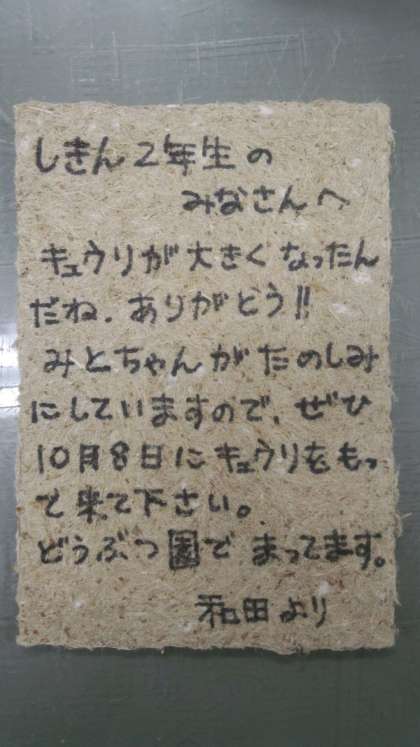 しきん2年生の
みなさんへ
キュウリが大きくなったん
だね。ありがとう!!
みとちゃんがたのしみ
にしていますので、ぜひ
10月8日にキュウリをもっ
て来て下さい。
どうぶつ園でまってます。
和田より